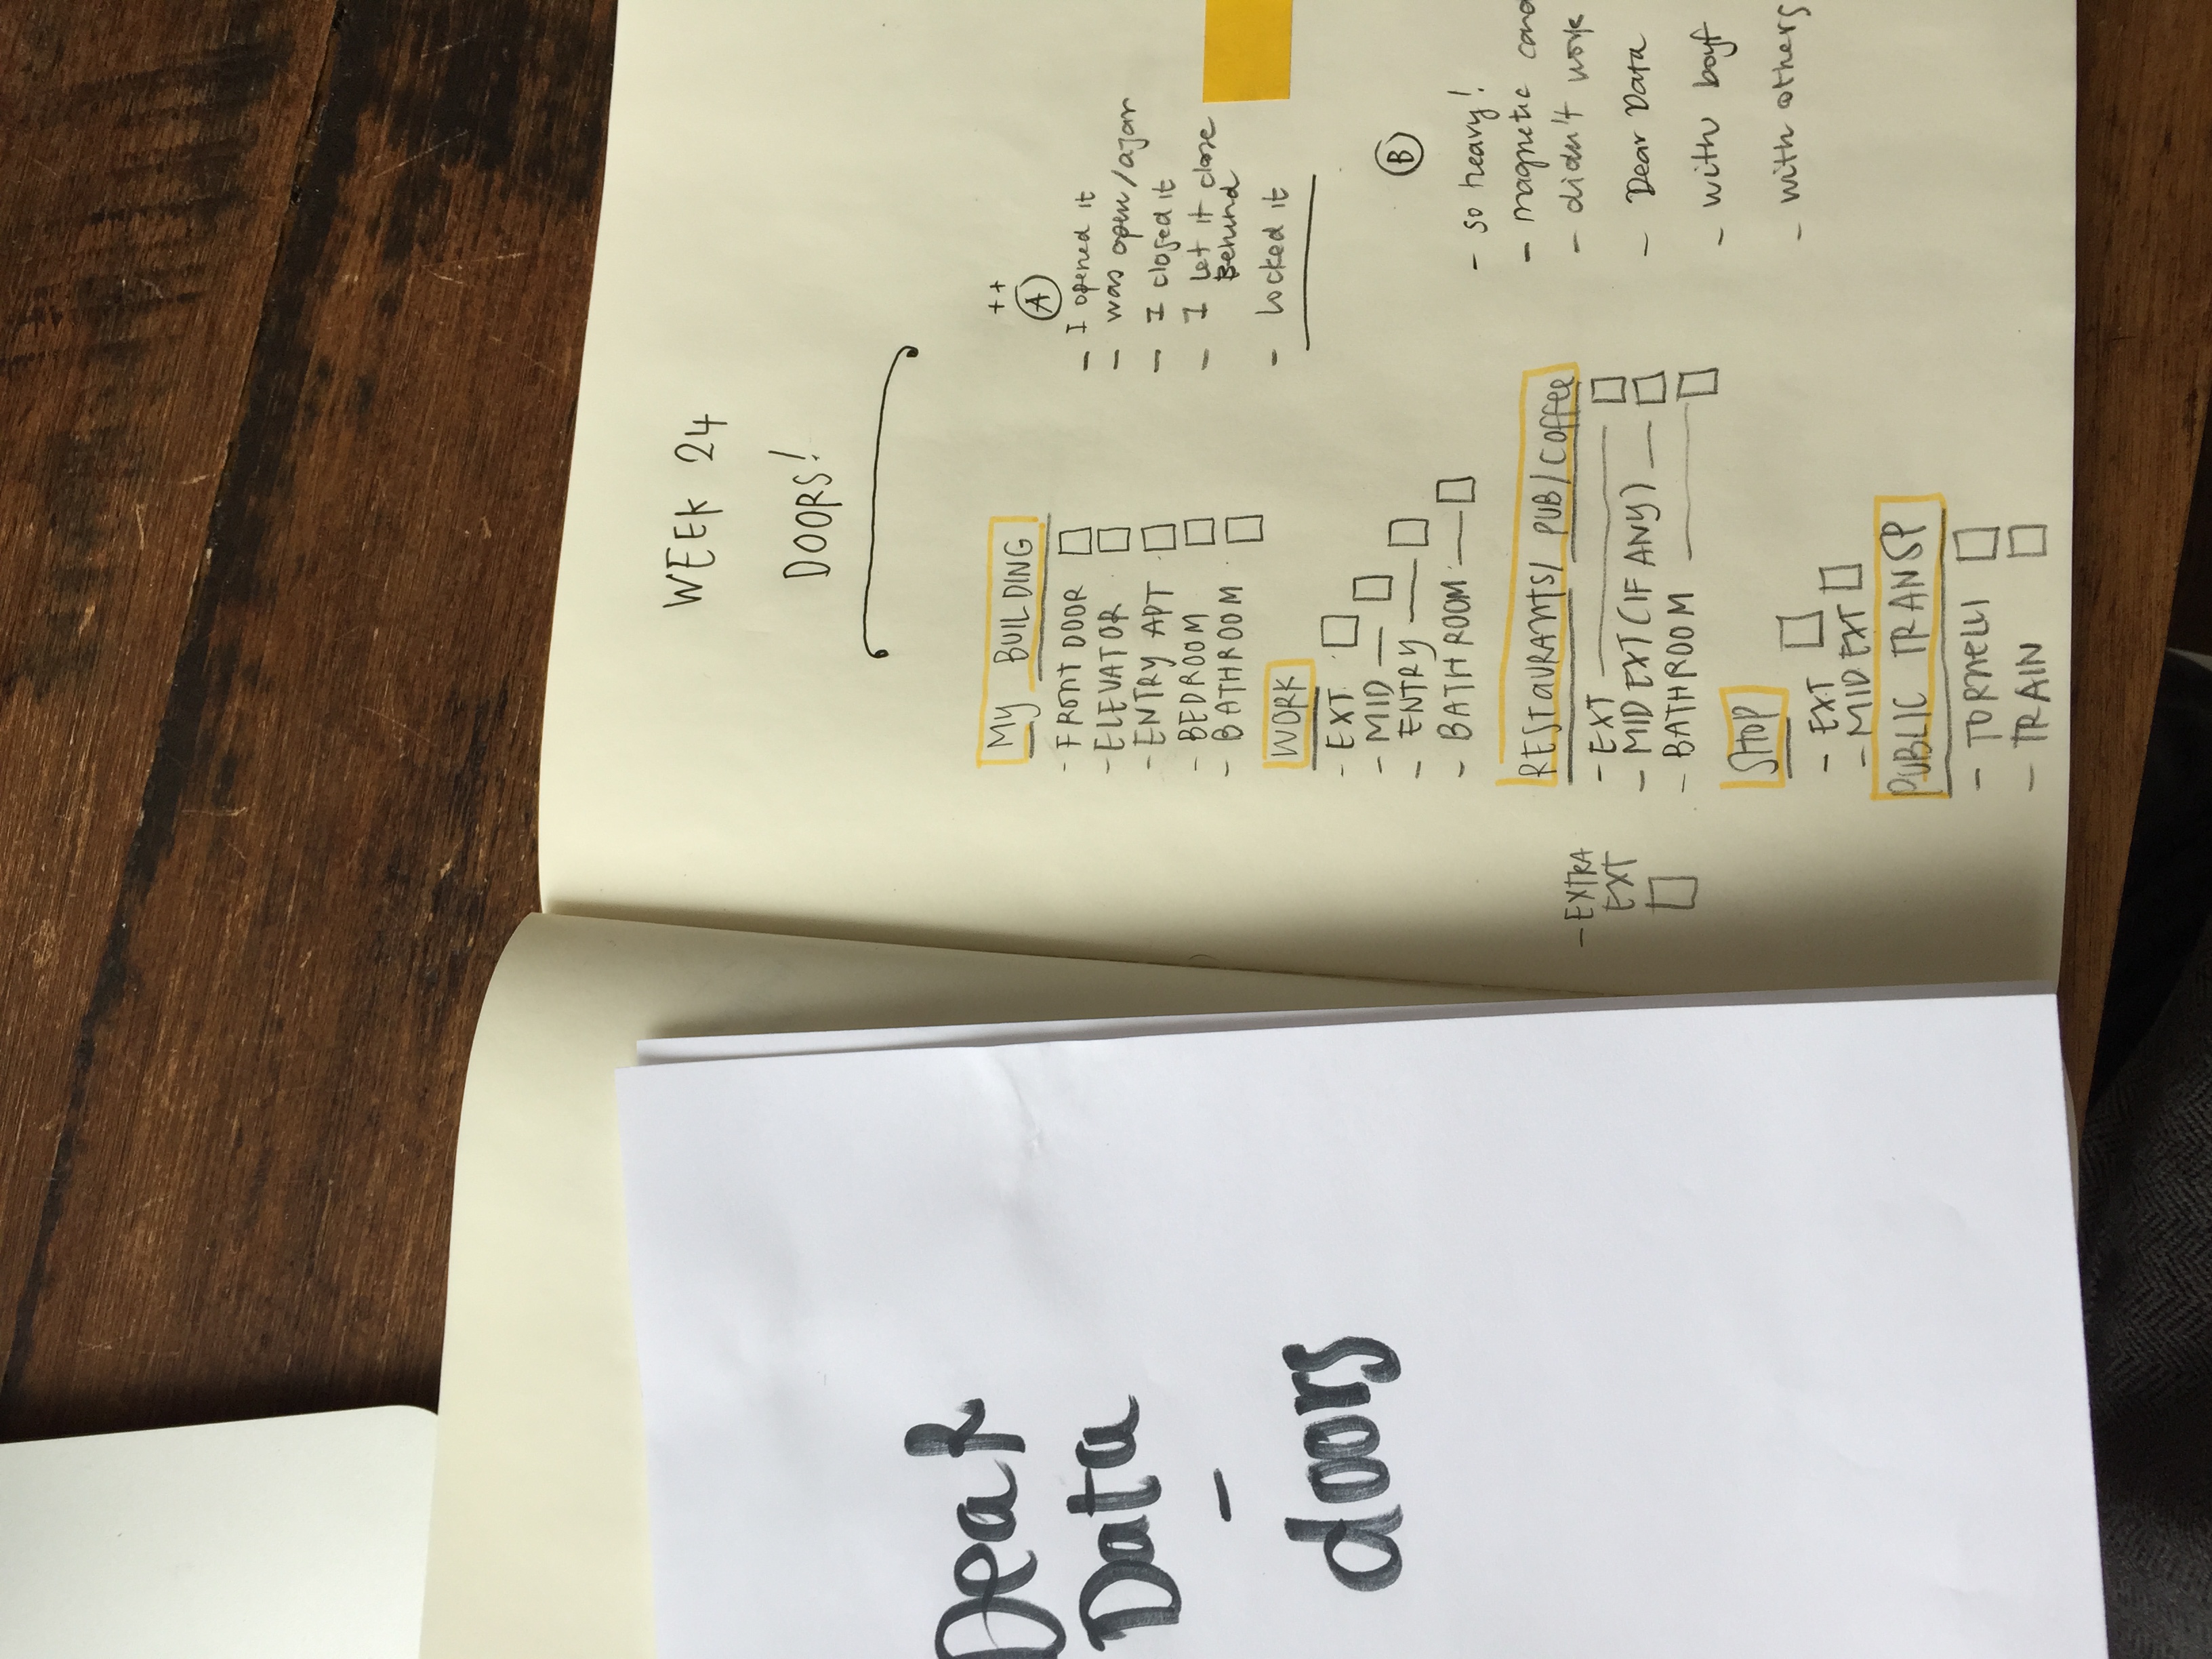 Dear
Data
-
doors
WEEK 24
DOORS!
MY BUILDING
- FRONT DOOR
- ELEVATOR
- ENTRY APT
- BEDROOM
- BATHROOM
WORK
- EXT.
- MID
- ENTRY
- BATHROOM
RESTAURANTS/ PUB/COFFEE
- EXT
- MID EXT (IF ANY)
- BATHROOM
- EXTRA
EXT
- EXT
- MID EXT
PUBLIC TRANSP
- TORNELLI
- TRAIN
++
A
- I opened it
- was open/ajar
- I closed it
- I let it close
behind
- locked it
B
- so heavy!
- magnetic card
- didn't work
- Dear Data
- with boyf
- with others